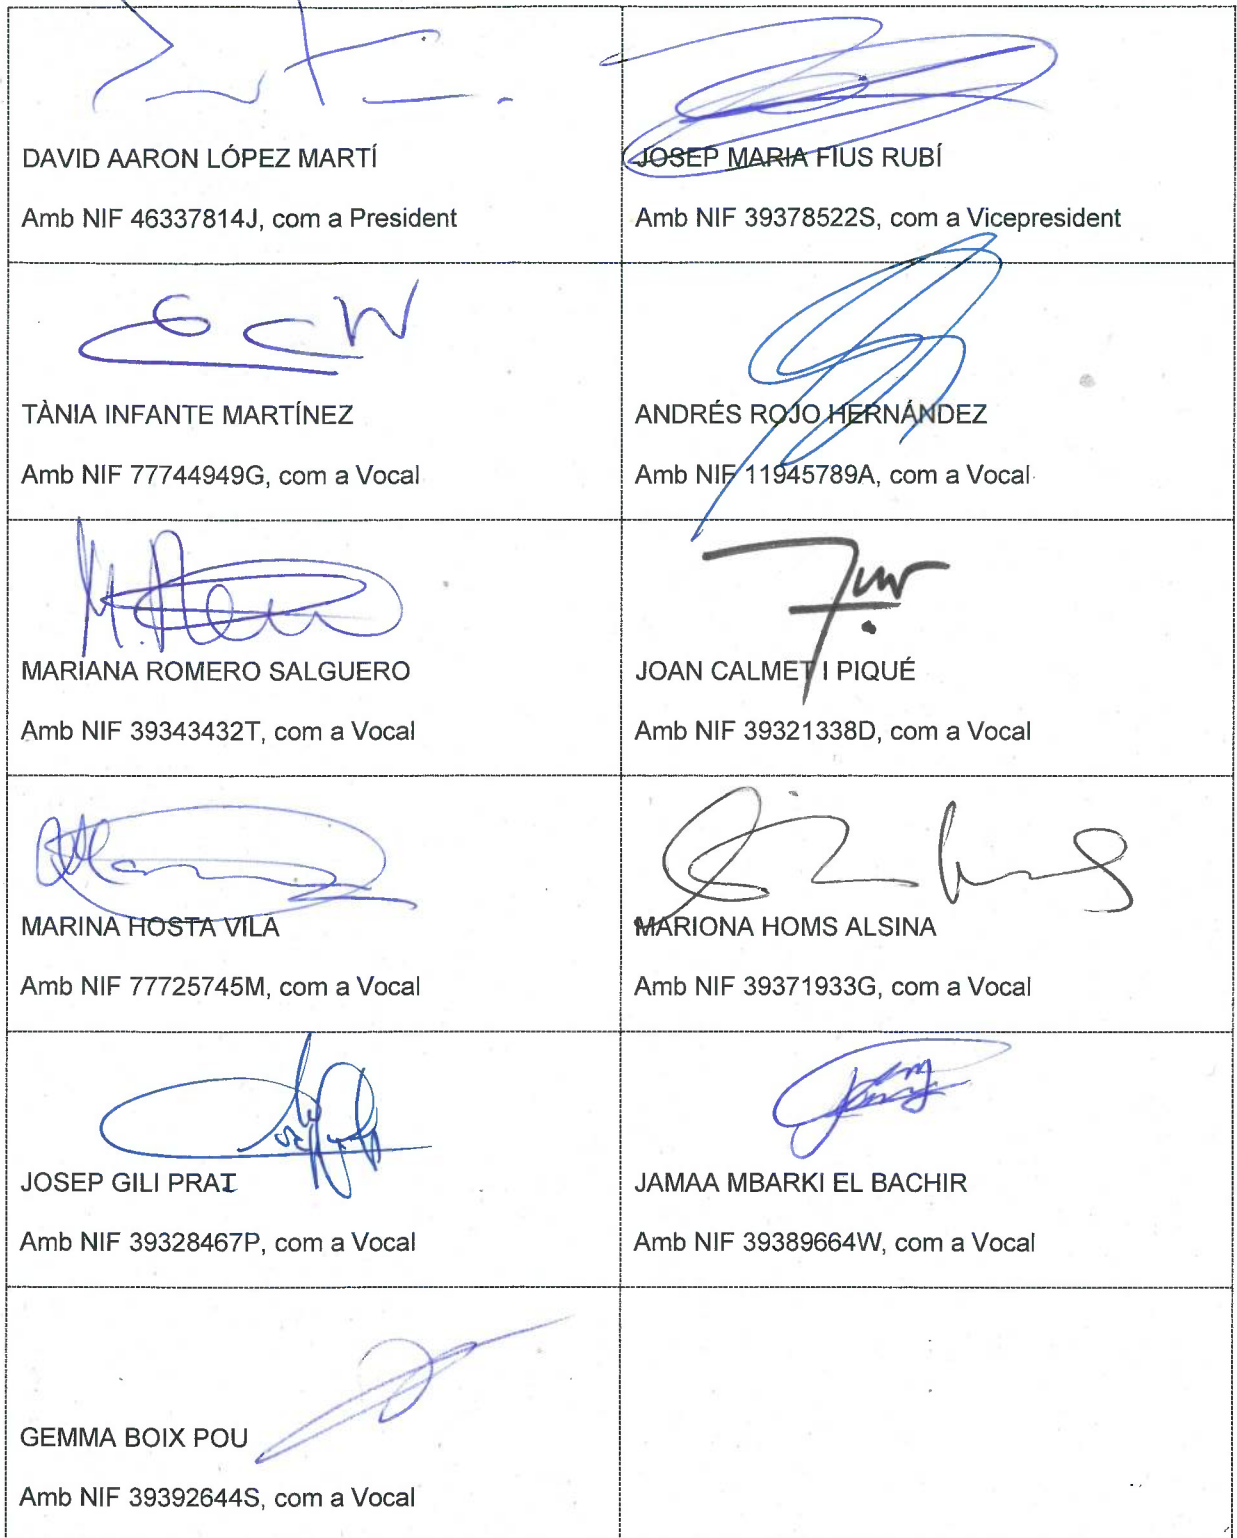 DAVID AARON LÓPEZ MARTÍ
Amb NIF 46337814J, com a President
JOSEP MARIA FIUS RUBÍ
Amb NIF 39378522S, com a Vicepresident
TÀNIA INFANTE MARTÍNEZ
Amb NIF 77744949G, com a Vocal
ANDRÉS ROJO HERNÁNDEZ
Amb NIF 11945789A, com a Vocal
MARIANA ROMERO SALGUERO
Amb NIF 39343432T, com a Vocal
JOAN CALMET I PIQUÉ
Amb NIF 39321338D, com a Vocal
MARINA HOSTA VILA
Amb NIF 77725745M, com a Vocal
MARIONA HOMS ALSINA
Amb NIF 39371933G, com a Vocal
JOSEP GILI PRAT
Amb NIF 39328467P, com a Vocal
JAMAA MBARKI EL BACHIR
Amb NIF 39389664W, com a Vocal
GEMMA BOIX POU
Amb NIF 39392644S, com a Vocal